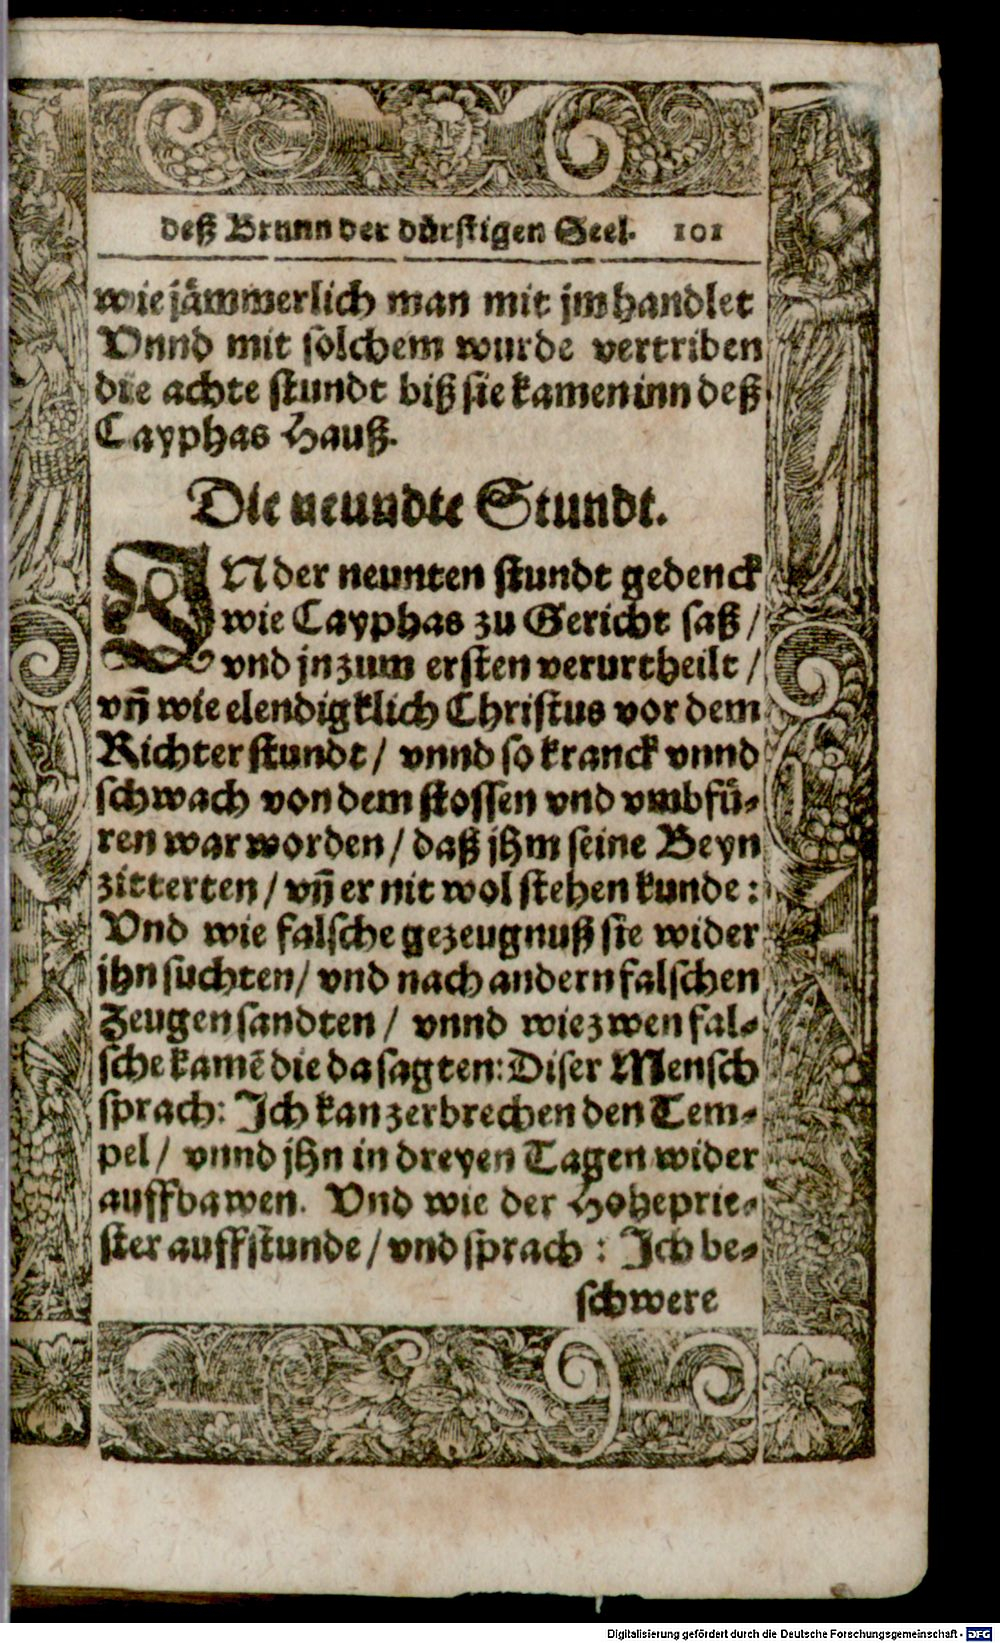 deß Brunn der dürstigen Seel. 101
wie jämmerlich man mit jm handlet
Vnnd mit solchem wurde vertriben
die achte stundt biß sie kamen inn deß
Cayphas Hauß.
Die neundte Stundt.
IN der neunten stundt gedenck
wie Cayphas zu Gericht saß /
vnd jn zum ersten verurtheilt /
vñ wie elendigklich Christus vor dem
Richter stundt / vnnd so kranck vnnd
schwach von dem stossen vnd vmbfü-
ren war worden / daß jhm seine Beyn
zitterten / vñ er nit wol stehen kunde:
Vnd wie falsche gezeugnuß sie wider
jhn suchten / vnd nach andern falschen
Zeugen sandten / vnnd wie zwen fal-
sche kamẽ die da sagten: Diser Mensch
sprach: Ich kan zerbrechen den Tem-
pel / vnnd jhn in dreyen Tagen wider
auffbawen. Vnd wie der Hoheprie-
ster auffstunde / vnd sprach: Ich be-
schwere
Digitalisierung gefördert durch die Deutsche Forschungsgemeinschaft - DFG